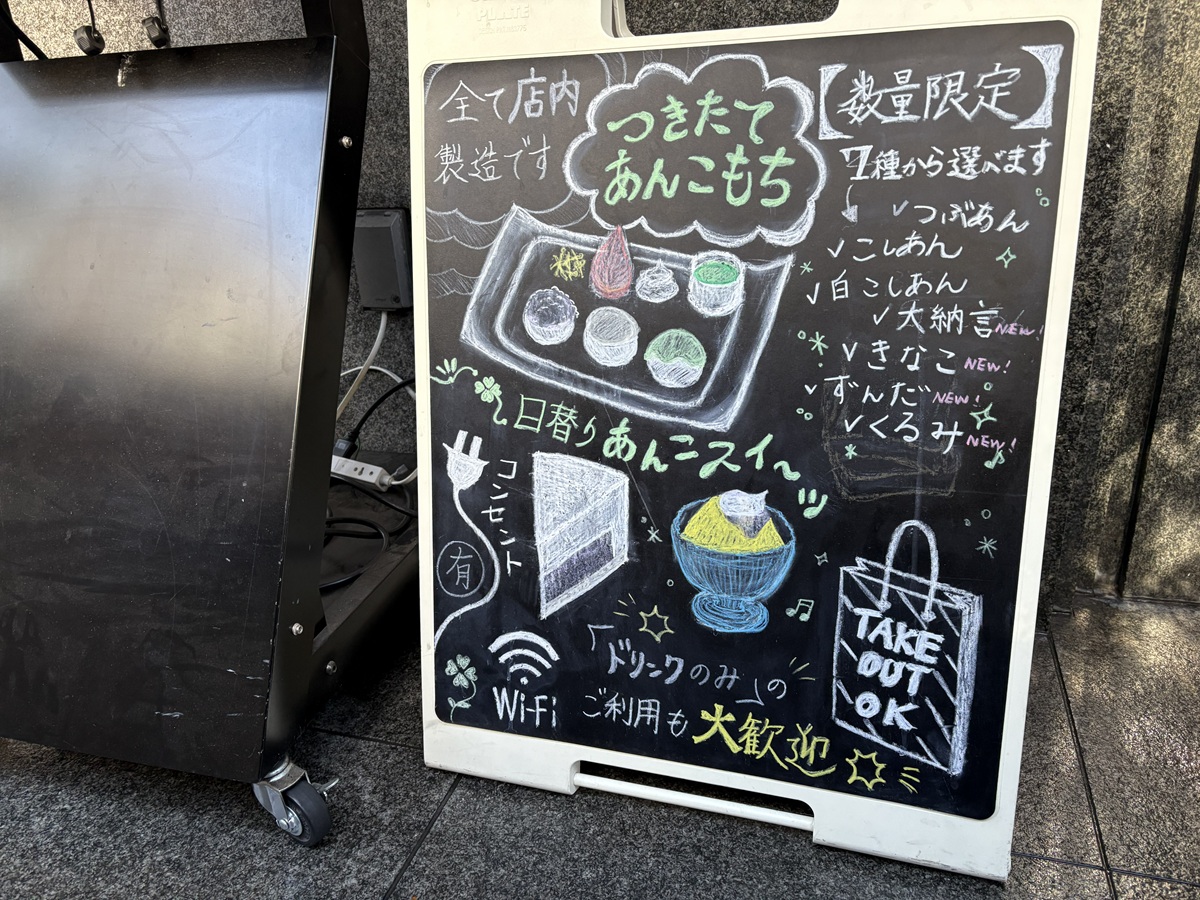 全て店内
製造です
つきたて
あんこもち
【数量限定】
7種から選べます
✓つぶあん
✓こしあん
✓白こしあん
✓大納言NEW!
✓きなこNEW!
✓ずんだNEW!
✓くるみNEW!
日替りあんこスイ〜ツ
コンセント
有
Wi-Fi
「ドリンクのみ」の
ご利用も大歓迎
TAKE
OUT
OK